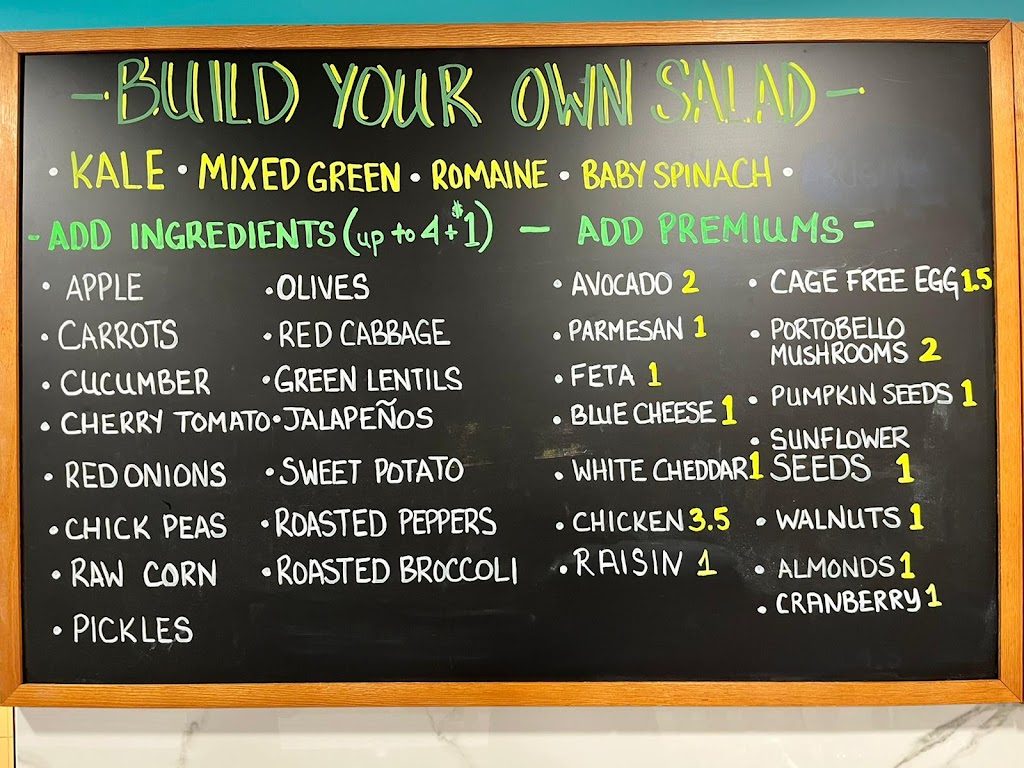 -BUILD YOUR OWN SALAD-
• KALE • MIXED GREEN • ROMAINE • BABY SPINACH •
-ADD INGREDIENTS (up to 4 + $1) — ADD PREMIUMS-
• APPLE
• CARROTS
• CUCUMBER
• CHERRY TOMATO
• RED ONIONS
• CHICK PEAS
• RAW CORN
• PICKLES
• OLIVES
• RED CABBAGE
• GREEN LENTILS
• JALAPEÑOS
• SWEET POTATO
• ROASTED PEPPERS
• ROASTED BROCCOLI
• AVOCADO 2
• PARMESAN 1
• FETA 1
• BLUE CHEESE 1
• WHITE CHEDDAR 1
• CHICKEN 3.5
• RAISIN 1
• CAGE FREE EGG 1.5
• PORTOBELLO
MUSHROOMS 2
• PUMPKIN SEEDS 1
• SUNFLOWER
SEEDS 1
• WALNUTS 1
• ALMONDS 1
• CRANBERRY 1